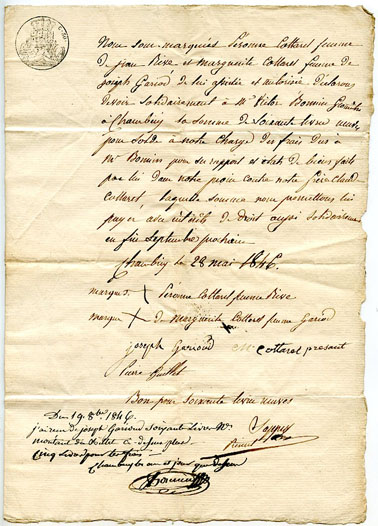 Nous sous marquées Péronne Collaret femme
de Jean Rive et Marguerite Collaret femme de
Joseph Gariod de lui assistée et autorisée déclarons
devoir solidairement à Mr Victor Bonnin
à Chambéry la somme de soixante livres neuves
pour solde à notre charge des frais dus à
Mr Bonnin pour un rapport et état de biens faits
par lui dans notre procès contre notre frère Claude
Collaret laquelle somme nous promettons lui
payer avec intérêts de droit aussi solidairement
en fin septembre prochain
Chambéry le 28 mai 1846.
marque + Péronne Collaret femme Rive
marque + de Marguerite Collaret femme Gariod
joseph Gariod Collaret présant
Pierre
Bon pour soixante livres neuves
Du 19 8bre 1846
j'ai reçu de joseph Gariod soixante livres
montant du billet ci-dessus plus
cinq livres pour les frais
Chambéry les an et jour que dessus